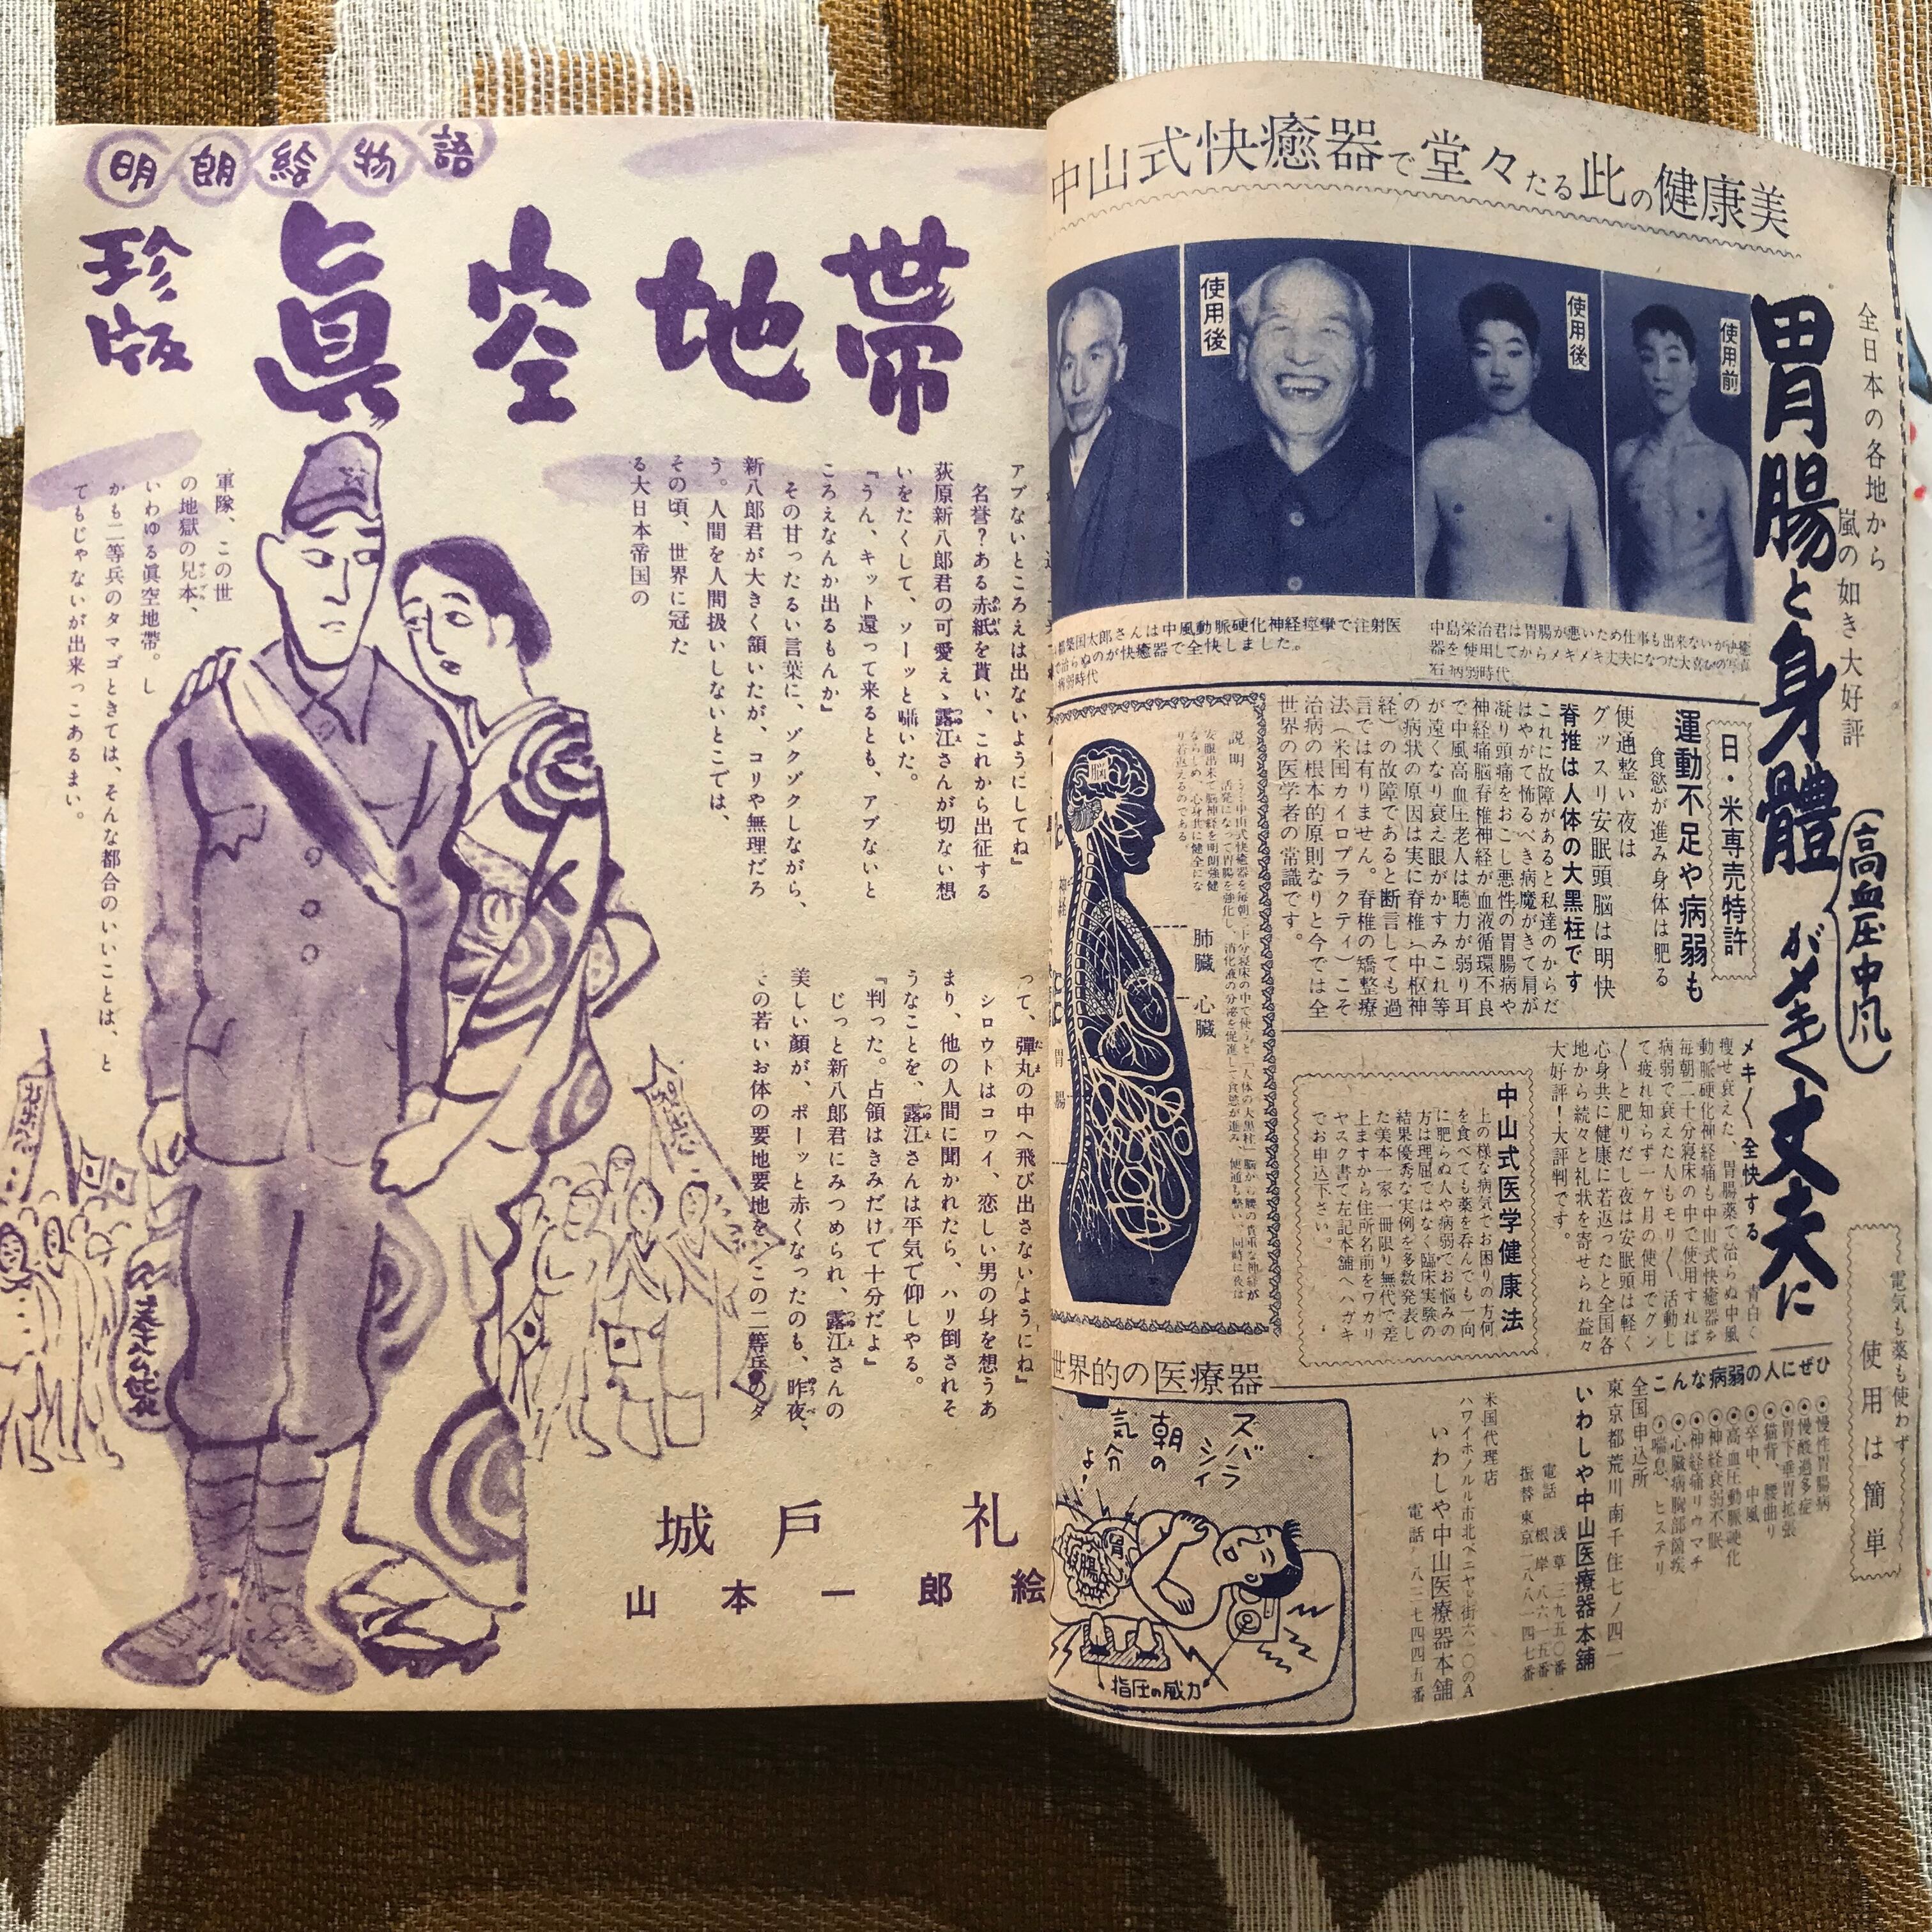 明朗絵物語
珍版
眞空地帯
軍隊、この世
の地獄の見本、
いわゆる眞空地帯。し
かも二等兵のタマゴときては、そんな都合のいいことは、と
てもじゃないが出来っこあるまい。
アブないところえは出ないようにしてね』
名誉?ある赤紙を貰い、これから出征する
荻原新八郎君の可愛えゝ露江さんが切ない想
いをたくして、ソーッと囁いた。
『うん、キット還って来るとも、アブないと
ころえなんか出るもんか』
その甘ったるい言葉に、ゾクゾクしながら、
新八郎君が大きく領いたが、コリや無理だろ
う。人間を人間扱いしないとこでは、
その頃、世界に冠た
る大日本帝国の
って、彈丸の中へ飛び出さないようにね』
シロウトはコワイ、恋しい男の身を想うあ
まり、他の人間に聞かれたら、ハリ倒されそ
うなことを、露江さんは平気で仰しやる。
『判った。占領はきみだけで十分だよ』
じっと新八郎君にみつめられ、露江さんの
美しい顔が、ポーッと赤くなったのも、昨夜、
その若いお体の要地要地を、この二等兵のタ
城戸 礼
山本一郎 絵
中山式快癒器で堂々たる此の健康美
使用後
使用後
使用前
都築国太郎さんは中風動脈硬化神経痙攣で注射医
治らぬのが快癒器で全快しました。
病弱時代
中島栄治君は胃腸が悪いため仕事も出来ないが快癒
器を使用してからメキメキ丈夫になつた大喜びの写真
右 病弱時代
全日本の各地から
嵐の如き大好評
胃腸と身體がメキメキ丈夫に
(高血圧中風)
日・米専売特許
運動不足や病弱も
食慾が進み身体は肥る
便通整い夜は
グッスリ安眠頭脳は明快
脊推は人体の大黒柱です
これに故障があると私達のからだ
はやがて怖るべき病魔がきて肩が
凝り頭痛をおこし悪性の胃腸病や
神経痛脳脊椎神経が血液循環不良
で中風高血圧老人は聴力が弱り耳
が遠くなり衰え眼がかすみこれ等
の病状の原因は実に脊椎(中枢神
経)の故障であると断言しても過
言では有りません。脊椎の矯整療
法(米国カイロプラクティ)こそ
治病の根本的原則なりと今では全
世界の医学者の常識です。
説明
脳
肺臓
心臓
胃
腸
メキ〱全快する
青白く
痩せ衰えた、胃腸薬で治らぬ中風
動脈硬化神経痛も中山式快癒器を
毎朝二十分寝床の中で使用すれば
病弱で衰えた人もモリ〱活動し
て疲れ知らず一ヶ月の使用でグン
〱と肥りだし夜は安眠頭は軽く
心身共に健康に若返ったと全国各
地から続々と礼状を寄せられ益々
大好評!大評判です。
中山式医学健康法
上の様な病気でお困りの方何
を食べても薬を呑んでも一向
に肥らぬ人や病弱でお悩みの
方は理屈ではなく臨床実験の
結果優秀な実例を多数発表し
た美本一家一冊限り無代で差
上ますから住所名前をワカリ
ヤスク書て左記本舗へハガキ
でお申込下さい。
電気も薬も使わず
使用は簡単
こんな病弱の人にぜひ
慢性胃腸病
慢酸過多症
胃下垂胃拡張
猫背、腰曲り
卒中、中風
高血圧動脈硬化
神経衰弱不眠
神経痛リウマチ
心臓病胸部箇疾
喘息、ヒステリ
全国申込所
東京都荒川南千住七ノ四一
いわしや中山医療器本舗
電話 浅草三九五〇番
根岸八六一五番
振替東京一八八一四七番
米国代理店
ハワイホノルル市北ベニヤド街六一〇のA
いわしや中山医療器本舗
電話 八三七四四五番
世界的の医療器
ズバラシイ
朝の
気分よ!
胃
腸
指圧の威力